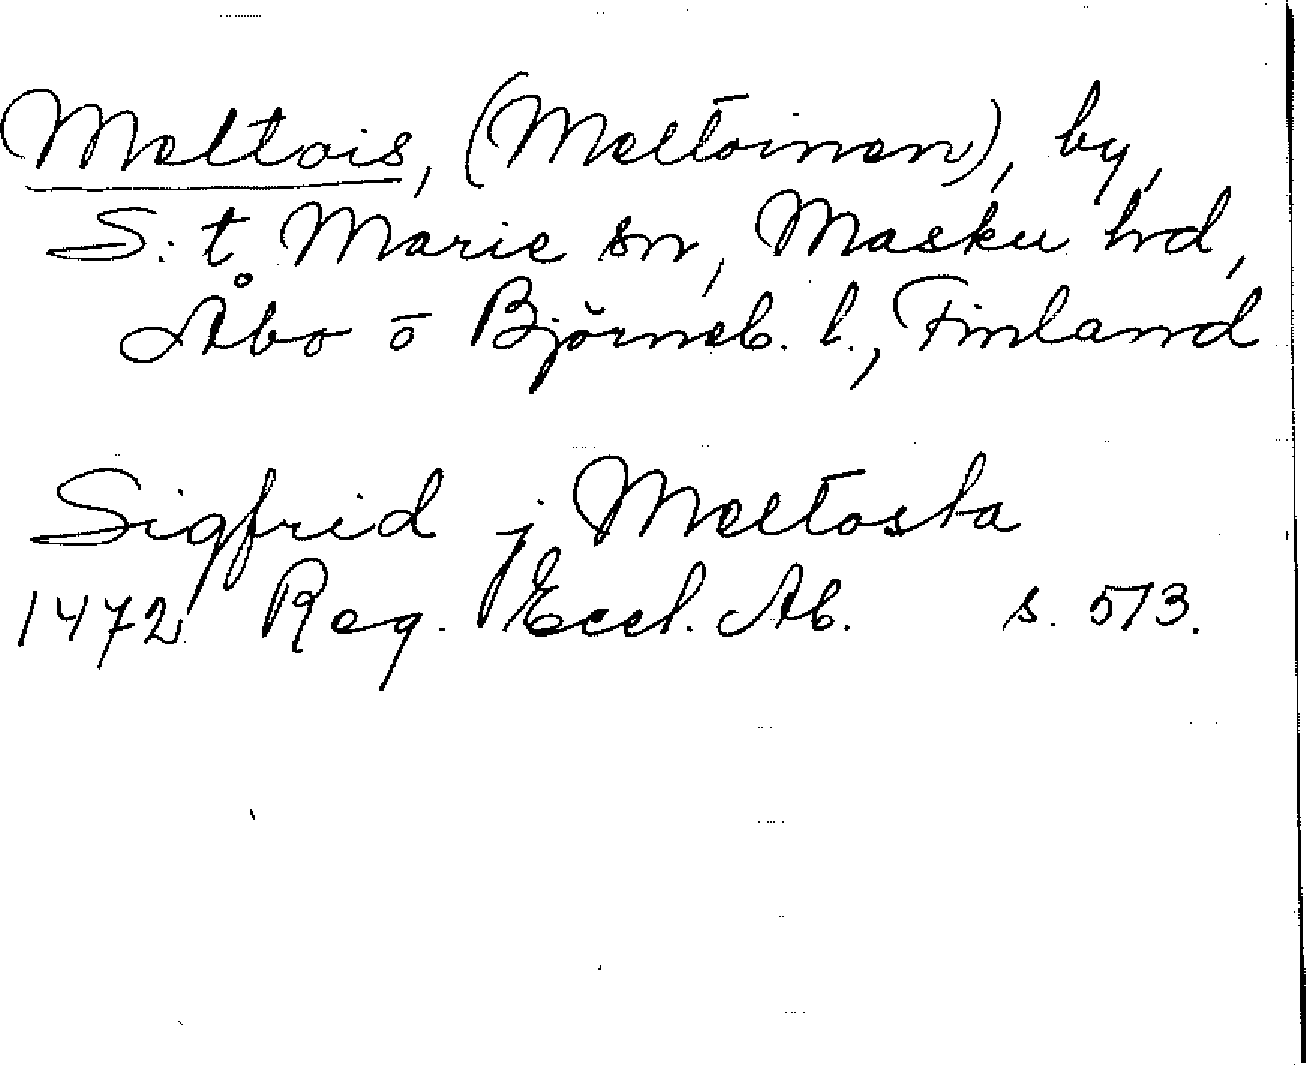 Meltois, (Meltoinen), by,
S:t Marie sn, Masku hd,
Åbo o Björneb. l., Finland
Sigfrid j Meltosta
1472 Reg. Eccl. Ab. s. 573.